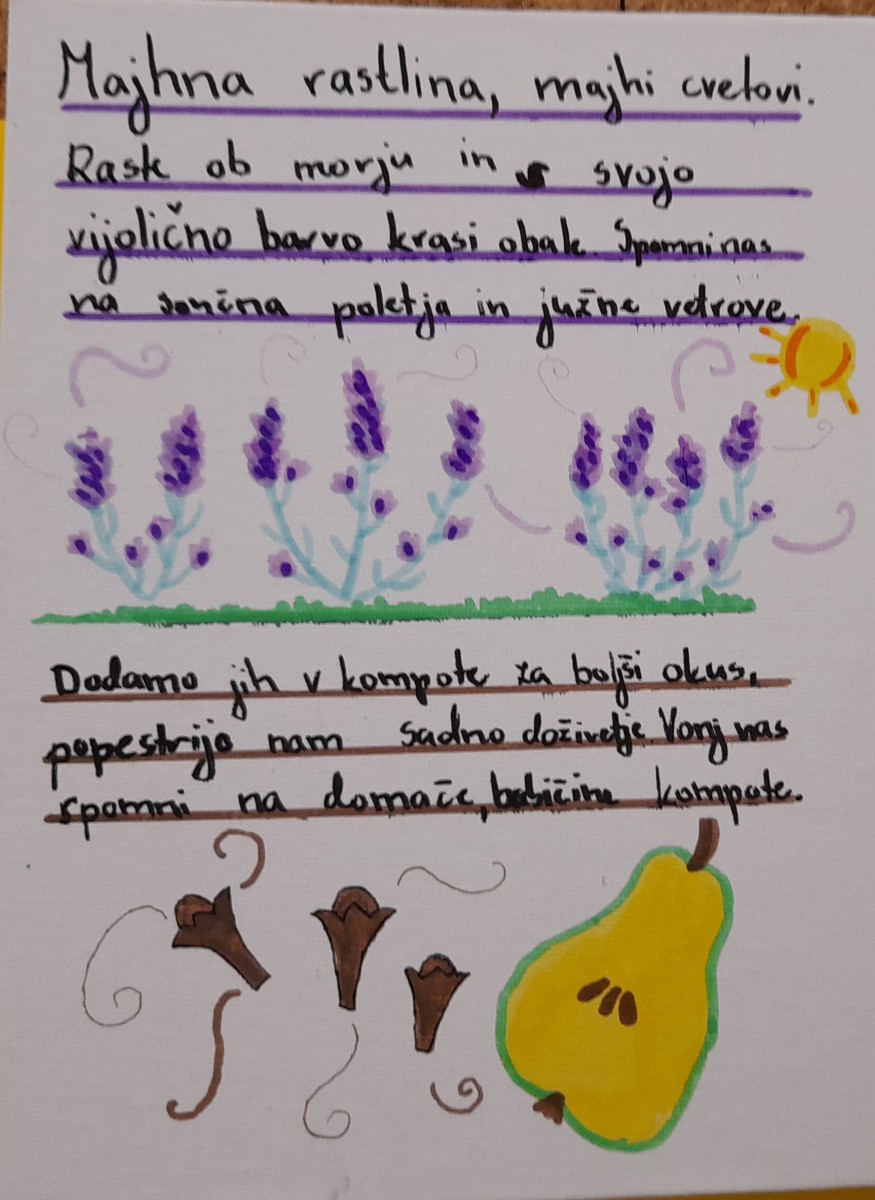 Majhna rastlina, majhi cvetovi.
Raste ob morju in s svojo
vijolično barvo krasi obale. Spomni nas
na sončna poletja in južne vetrove.
Dodamo jih v kompote za boljši okus,
popestrijo nam sadno doživetje. Vonj nas
spomni na domače, babičine kompote.